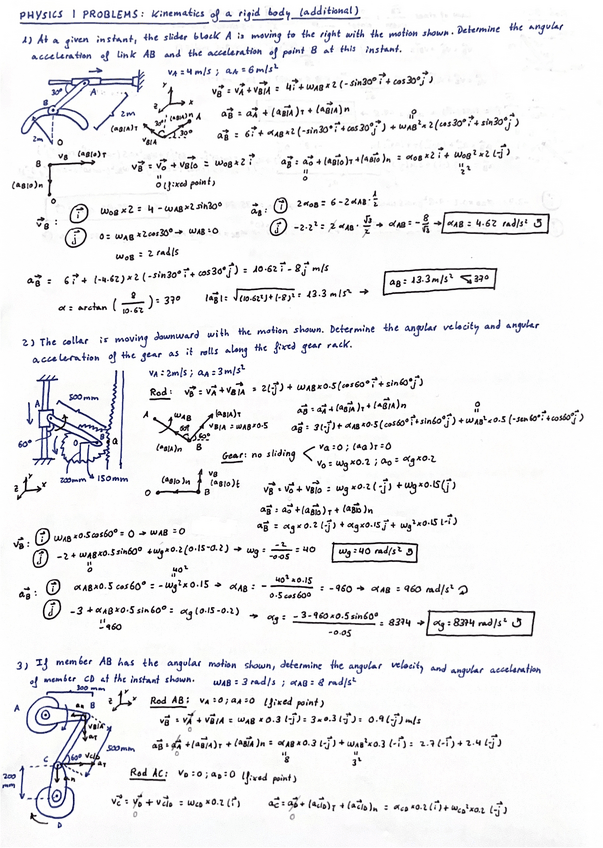 PHYSICS 1 PROBLEMS: Kinematics of a rigid body (additional)
1) At a given instant, the slider block A is moving to the right with the motion shown. Determine the angular
acceleration of link AB and the acceleration of point B at this instant.
vA = 4 m/s ; aA = 6 m/s²
vB = vA + vB/A = 4i + ωAB × 2 (-sin30° i + cos30° j)
aB = aA + (aB/A)T + (aB/A)n
aB = 6i + αAB × 2 (-sin30° i + cos30° j) + ωAB² × 2 (cos30° i + sin30° j)
30°
A
B
2m
2m
O
vB = vO + vB/O = ωOB × 2 i
0 (fixed point)
aB = aO + (aB/O)T + (aB/O)n = αOB × 2 i + ωOB² × 2 (-j)
0
2²
B vB (aB/O)T
(aB/O)n
O
vB : i ωOB × 2 = 4 - ωAB × 2 sin30°
j 0 = ωAB × 2 cos30° → ωAB = 0
ωOB = 2 rad/s
aB : i 2αOB = 6 - 2αAB · 1/2
j -2·2² = 2αAB · √3/2 → αAB = -8/√3 → αAB = 4.62 rad/s² ↺
aB = 6i + (-4.62) × 2 (-sin30° i + cos30° j) = 10.62 i - 8 j m/s
aB = 13.3 m/s² 37°
α = arctan (8/10.62) = 37° |aB| = √(10.62²)+(-8)² = 13.3 m/s² →
2) The collar is moving downward with the motion shown. Determine the angular velocity and angular
acceleration of the gear as it rolls along the fixed gear rack.
vA = 2 m/s ; aA = 3 m/s²
500mm
A
60°
O
B
Q
200mm 150mm
Rod: vB = vA + vB/A = 2(-j) + ωAB × 0.5 (cos60° i + sin60° j)
aB = aA + (aB/A)T + (aB/A)n
aB = 3(-j) + αAB × 0.5 (cos60° i + sin60° j) + ωAB² × 0.5 (-sen60° i + cos60° j)
0
A ωAB (aB/A)T
vB/A = ωAB × 0.5
(aB/A)n 60° B
Gear: no sliding
vQ = 0 ; (aQ)T = 0
vO = ωg × 0.2 ; aO = αg × 0.2
vB
(aB/O)n (aB/O)t
O B
vB = vO + vB/O = ωg × 0.2 (-j) + ωg × 0.15 (j)
aB = aO + (aB/O)T + (aB/O)n
aB = αg × 0.2 (-j) + αg × 0.15 j + ωg² × 0.15 (-i)
vB : i ωAB × 0.5 cos60° = 0 → ωAB = 0
j -2 + ωAB × 0.5 sin60° = ωg × 0.2 (0.15-0.2) → ωg = -2/-0.05 = 40 ωg = 40 rad/s² ↺
0
40²
aB : i αAB × 0.5 cos60° = -ωg² × 0.15 → αAB = - 40² × 0.15/0.5 cos60° = -960 → αAB = 960 rad/s² ↻
j -3 + αAB × 0.5 sin60° = αg (0.15-0.2) → αg = -3-960 × 0.5 sin60°/-0.05 = 8374 → αg = 8374 rad/s² ↺
-960
3) If member AB has the angular motion shown, determine the angular velocity and angular acceleration
of member CD at the instant shown. ωAB = 3 rad/s ; αAB = 8 rad/s²
300 mm
A
B
500mm
60°
C
200 mm
D
Rod AB: vA = 0 ; aA = 0 (fixed point)
vB = vA + vB/A = ωAB × 0.3 (-j) = 3 × 0.3 (-j) = 0.9 (-j) m/s
aB = aA + (aB/A)T + (aB/A)n = αAB × 0.3 (-j) + ωAB² × 0.3 (-i) = 2.7 (-i) + 2.4 (-j)
8
3²
Rod AC: vD = 0 ; aD = 0 (fixed point)
vC = vD + vC/D = ωCD × 0.2 (i) aC = aD + (aC/D)T + (aC/D)n = αCD × 0.2 (i) + ωCD² × 0.2 (-j)
0
0